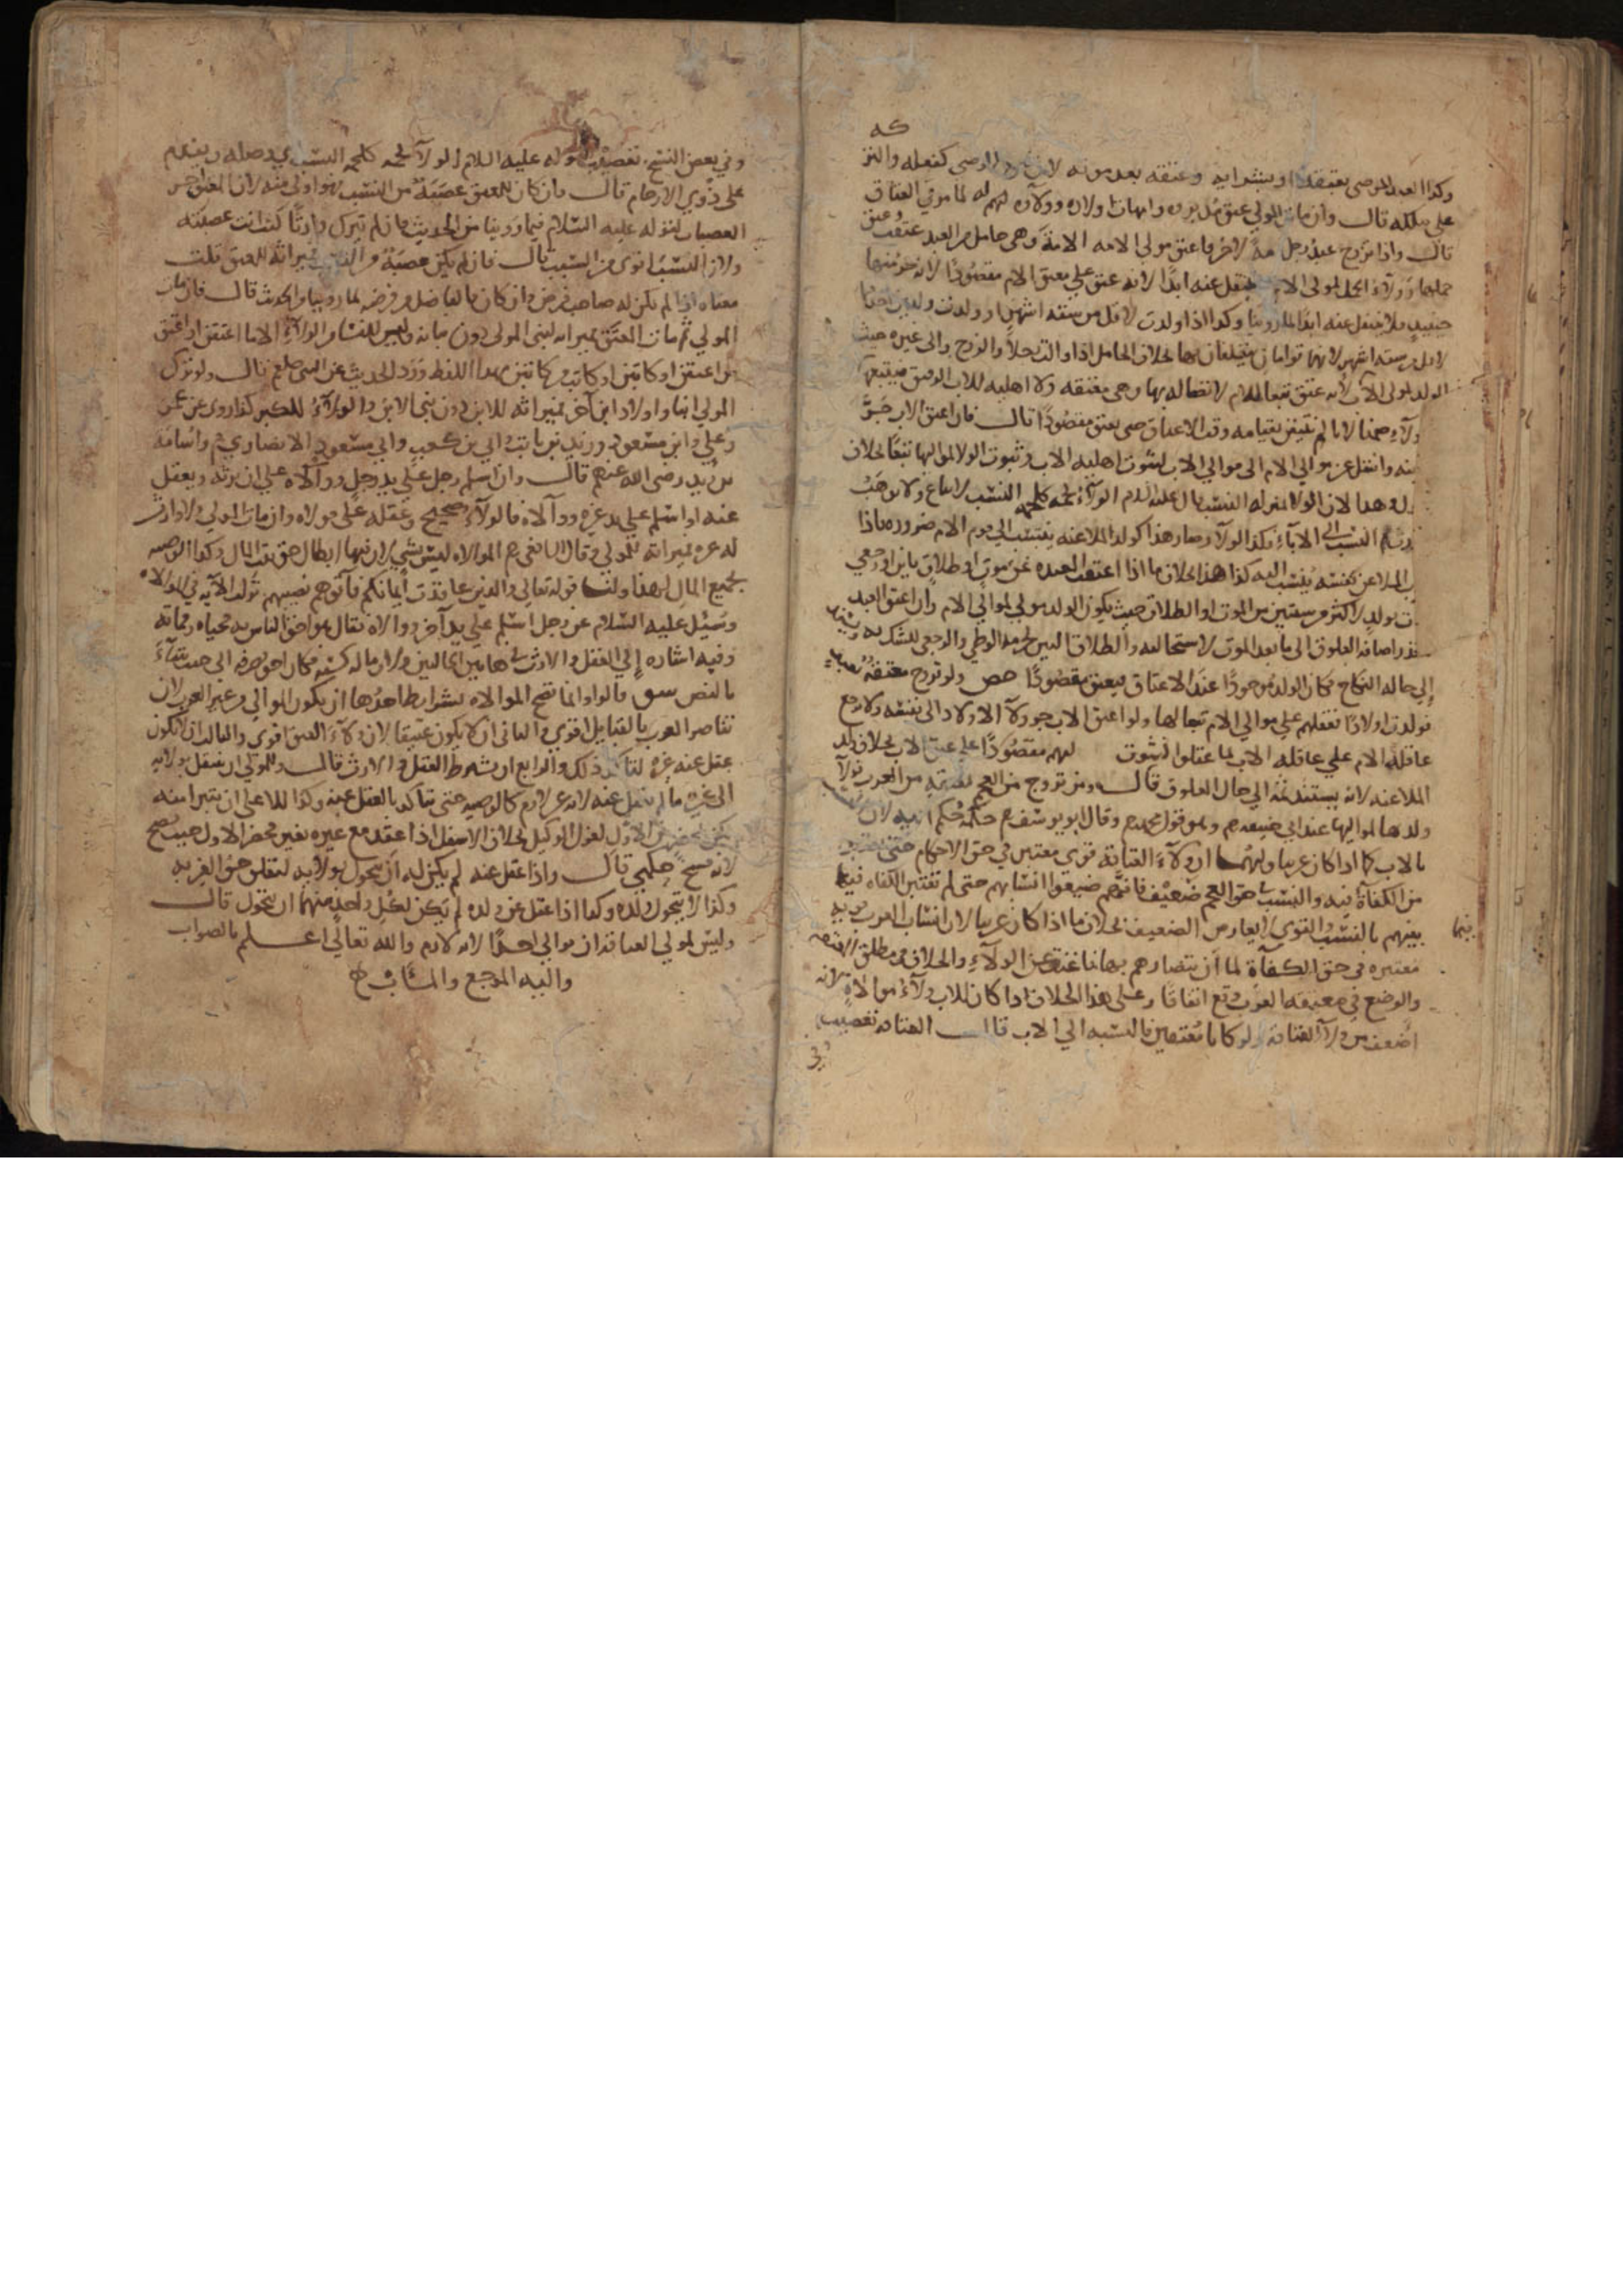 وكذا العبد الموصى بعتقه او بشرايه وعتقه بعد موته لان فعل الوصى كفعله والتركة
على ملكه قال وان مات المولى عتق مدبروه وامهات اولاده وولاؤه لهم له لما مر فى العتاق
قال واذا تزوج عبد رجل امة لاخر فاعتق مولى الامه الامة وهى حامل من العبد عتقت وعتق
حملها وولاء الحمل لمولى الام لا ينتقل عنه ابدا لانه عتق على معتق الام مقصودا لانه جزء منها
فلا ينتقل عنه ابدا لما روينا وكذا اذا ولدت لاقل من ستة اشهر او ولدت ولدين احدهما
لاقل من ستة اشهر لانهما توامان يتعلقان معا بخلاف الحامل اذا والت رجلا والزوج والى غيره حيث
الولد لمولى الاب لانه عتق تبعا للام لاتصاله بها وهى معتقه ولا اهليه للاب لرقيق فيتبعها
ولاء ضمنا لانا لم نتيقن بقيامه وقت الاعتاق حتى يعتق مقصودا قال فان اعتق الاب جر
ابنه وانتقل عن موالى الام الى موالى الاب لثبوت اهليه الاب وثبوت الولا لمواليها تبعا بخلاف
وهذا لان الولا بمنزله النسب قال عليه السلام الولاء لحمه كلحمه النسب لا يباع ولا يوهب
ثم النسب الى الاباء فكذا الولاء وصار هذا كولد الملاعنه ينتسب الى قوم الام ضروره فاذا
الملاعن نفسه ينتسب اليه كذا هذا بخلاف ما اذا اعتقت المعتده عن موت او طلاق باين او رجعى
بولد لاكثر من سنتين من الموت او الطلاق حيث يكون الولد مولى لموالى الام وان اعتق العبد
اضافه العلوق الى ما بعد الموت لاستحالته والطلاق الباين لحرمة الوطى والرجعى للشك
الى حاله النكاح فكان الولد موجودا عند الاعتاق فيعتق مقصودا ولو تزوج معتقه بعبد
فولدت اولادا فعقلهم على موالى الام تبعا لها ولو اعتق الاب جر ولاء الاولاد الى نفسه ولا يرجع
عاقلة الام على عاقله الاب بما عقلوا لثبوت لهم مقصودا على عتق الاب بخلاف ولد
الملاعنه لانه يستند ثمة الى حال العلوق قال ومن تزوج من العجم بمعتقه من العرب فولاء
ولدها لمواليها عند ابى حنيفه رحم وهو قول محمد رحم وقال ابو يوسف رحم حكمه حكم ابيه لان النسب
بالاب كما اذا كان عربيا ولهما ان ولاء العتاقة قوى معتبر فى حق الاحكام حتى
من الكفاة فيه والنسب فى حق العجم ضعيف فانهم ضيعوا انسابهم حتى لم تعتبر الكفاه فيما
بينهم بالنسب والقوى لا يعارض الضعيف بخلاف ما اذا كان عربيا لان انساب العرب قويه
معتبره فى حق الكفاة لما ان تناصرهم بها فاغنت عن الولاء والخلاف فى مطلق المعتقه
والوضع فى معتقه العرب وقع اتفاقا وعلى هذا الخلاف اذا كان للاب ولاء موالاة لانه
اضعف من ولاء العتاقه ولو كانا معتقين فالنسبه الى الاب قال العتاقه تعصيب
وفى
وفى بعض النسخ تعصيب لقوله عليه السلام الولاء لحمه كلحمة النسب
على ذوى الارحام قال فان كان للمعتق عصبة من النسب فهو اولى منه لان المعتق اخر
العصبات لقوله عليه السلام فيما روينا من الحديث فان لم يترك وارثا كنت انت عصبته
ولان النسب اقوى من السبب قال فان لم يكن عصبة من النسب فميراثه للمعتق قلت
معناه اذا لم يكن له صاحب فرض وان كان فالفاضل من فرضه لما روينا من الحديث قال فان مات
المولى ثم مات المعتق فميراثه لبنى المولى دون بناته وليس للنسا من الولاء الا ما اعتقن او اعتق
من اعتقن او كاتبن او كاتب من كاتبن بهذا اللفظ ورد الحديث عن النبى صلعم قال ولو ترك
المولى ابنا واولاد ابن آخر فميراثه للابن دون بنى الابن والولاء للكبر كذا روى عن عمر
وعلى وابن مسعود وزيد بن ثابت وابى بن كعب وابى مسعود الانصارى واسامة
بن زيد رضى الله عنهم قال وان اسلم رجل على يد رجل ووالاه على ان يرثه ويعقل
عنه او اسلم على يد غيره ووالاه فالولاء صحيح وعقله على مولاه وان مات المولى ولا وارث
له غيره فميراثه للمولى وقال الشافعى رحم الموالاه ليس بشى لان فيها ابطال حق بيت المال وكذا الوصيه
بجميع المال لهذا ولنا قوله تعالى والذين عاقدت ايمانكم فاتوهم نصيبهم نزلت الآيه فى الموالاه
وسئل عليه السلام عن رجل اسلم على يد آخر ووالاه فقال هو احق الناس به محياه ومماته
وفيه اشاره الى العقل والارث فى هاتين الحالين ولان ماله كسبه فكان احق بصرفه الى حيث شاء
بالنص قالوا وانما تصح الموالاه بشرايط احدها ان يكون الموالى من غير العرب لان
تناصر العرب بالقبايل اقوى والثانى ان لا يكون عتيقا لان ولاء العتق اقوى والثالث ان لا يكون
عقل عنه غيره لتاكد ذلك والرابع ان يشترط العقل والارث قال وللمولى ان ينتقل بولايه
الى غيره ما لم يعقل عنه لانه غير لازم كالوصيه حتى يتاكد بالعقل عنه وكذا للاعلى ان يتبرا منه
لكن بمحضر من الاول لعزل الوكيل بخلاف الاسفل اذا عقد مع غيره بغير محضر الاول حيث يصح
لانه فسخ حكمى قال واذا عقل عنه لم يكن له ان يتحول بولايه لتعلق حق الغير به
وكذا لا يتحول ولده وكذا اذا عقل عن ولده لم يكن لكل واحد منهما ان يتحول قال
وليس لمولى العتاقة ان يوالى احدا لانه لازم والله تعالى اعلم بالصواب
واليه المرجع والمآب